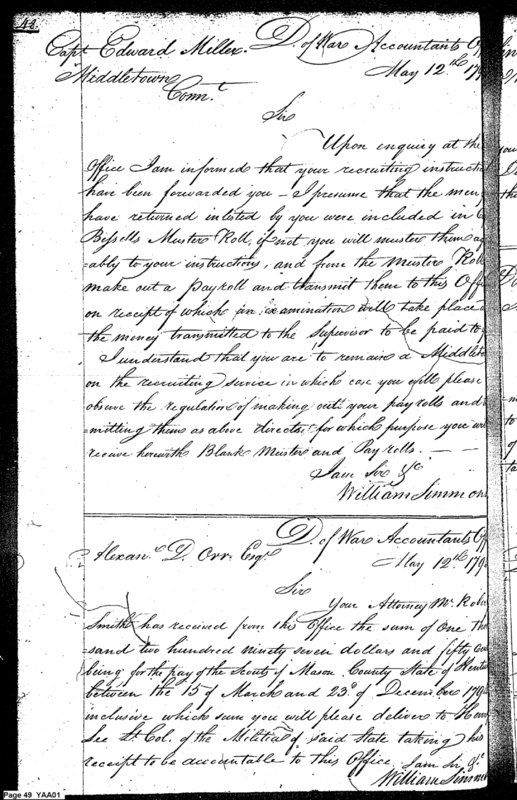 44
Capt Edward Miller. D. of War Accountants Of
Middletown May 12th 179
Connt
Sir
Upon enquiry at the
Office I am informed that your recruiting instructi
have been forwarded you – I presume that the men y
have returned inlisted by you were included in C
Bissells Muster Roll, if not, you will muster them ag
=ably to your instructions, and from the Muster Roll
make out a Payroll and transmit them to this Offi
on receipt of which an examination will take place
the money transmitted to the Supervisor to be paid to y
I understand that you are to remain a Middleto
on the recruiting service in which case you will please
observe the regulation of making out your payrolls and
=mitting them as above directs, for which purpose you wi
receive herewith Blank Muster and Pay rolls. — —
I am Sir &c
William Simmons
D. of War Accountants Of
Alexanr. D. Orr. Esqr. May 12th 179
Sir
Your Attorney Mr. Robe
Smith has received from this Office the sum of One Tho
sand two hundred ninety seven dollars and fifty Cen
being for the pay of the Scouts of Mason County State of Kentu
between the 15 of March and 23d. of December 179
inclusive which sum you will please deliver to Hen
Lee Lt. Col. of the Militia of said State taking his
receipt to be accountable to this Office. I am Sir &c
William Simmo
Page 49 YAA01